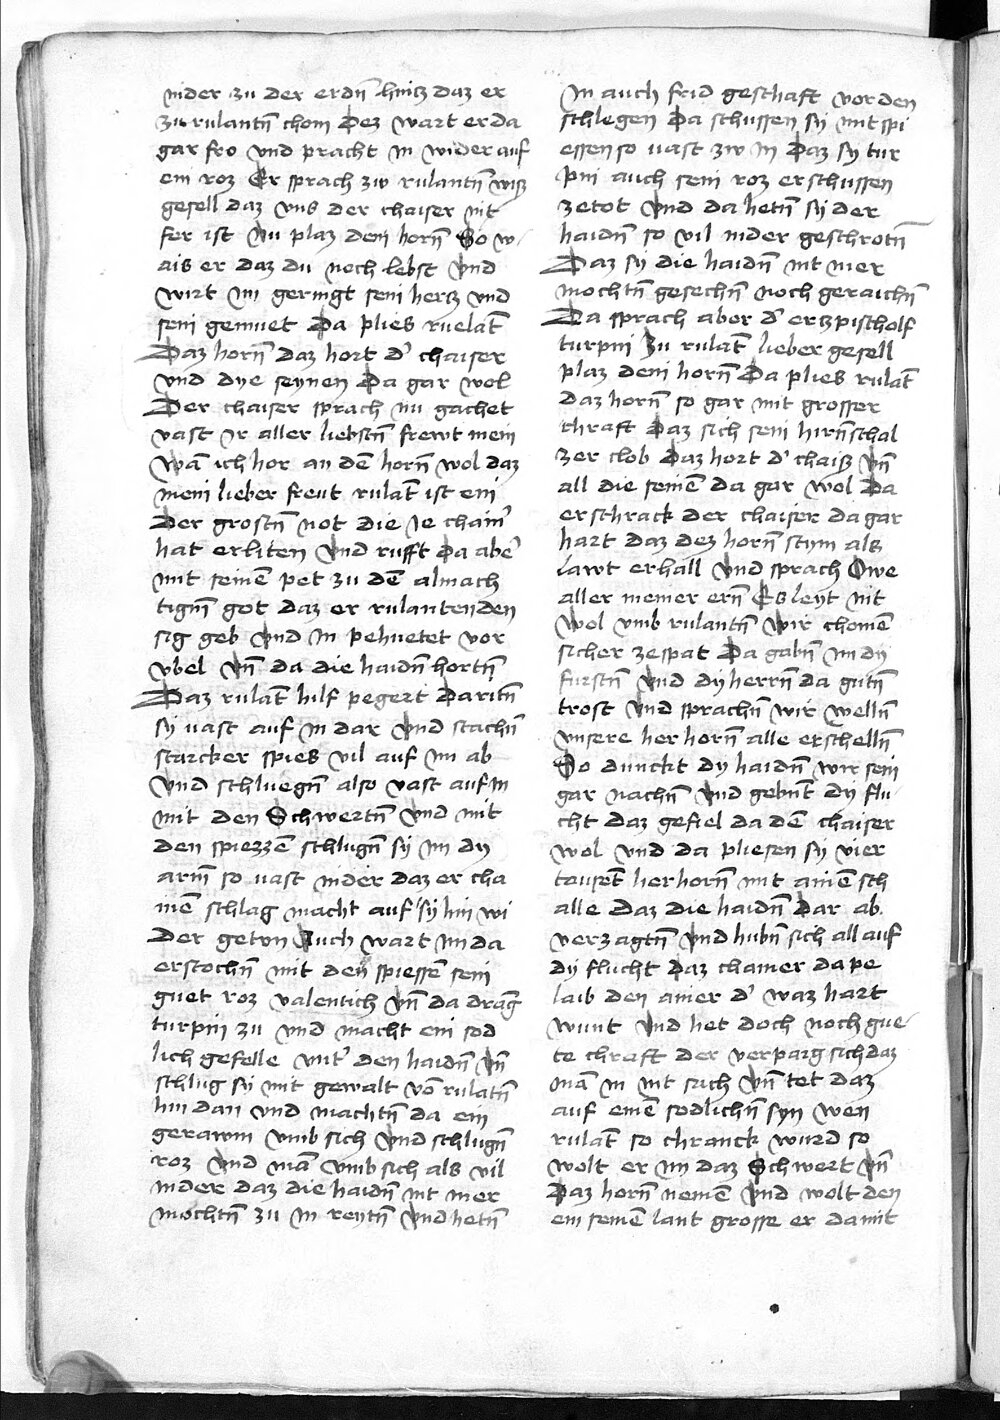 nider zu der erdn̄ hintz daz er
zu rulantn̄ chom Dez wart er da
gar fro vnd pracht in wider auf
ein roz Er sprach zw rulantn̄ wiz
gesell daz vns der chaiser nit
fer ist Nu plaz dein horn̄ So w-
ais er daz du noch lebst vnd
wirt im geringt sein hertz vnd
sein gemuet Da plies ruelāt
Daz horn̄ daz hort d' chaiser
vnd dye seynen Da gar wol
Der chaiser sprach nu gachet
vast ir aller liebstn̄ frewt mein
wā ich hor an dē horn̄ wol daz
mein lieber freut rulāt ist ein
Der grostn̄ not die ie chain'
hat erliten vnd rufft Da abe'
mit seinē pet zu dē almach
tign̄ got daz er rulanten den
sig geb vnd in pehuetet vor
vbel vn̄ da die haidn̄ hortn̄
Daz rulāt hilf pegert Da ritn̄
sy vast auf in dar vnd stachn̄
starcker spies vil auf im ab
vnd schluegn̄ also vast auf in
mit den Schwertn̄ vnd mit
den spiezzē schlugn̄ sy im dy
arm̄ so vast nider daz er cha
inē schlag macht auf sy hin wi
der getvn Auch wart im da
erstochn̄ mit den spiessē sein
guet roz valentich vn̄ da drāg
turpin zu vnd macht ein sod
lich gefelle vnt' den haidn̄ vn̄
schlug sy mit gewalt vō rulātn̄
hin dan vnd machtn̄ da ein
gerawm vmb sich vnd schlugn̄
roz vnd mā vmb sich als vil
nider daz die haidn̄ nit mer
mochtn̄ zu in reytn̄ vnd hetn̄
in auch frid geschaft vor den
schlegen Da schussen sy mit spi
essen so vast zw in Daz sy tur
pin auch sein roz erschussen
zetot vnd da hetn̄ sy der
haidn̄ so vil nider geschrotn̄
Daz sy die haidn̄ nit mer
mochtn̄ gesechn̄ noch geraichn̄
Da sprach aber d' ertzpischolf
turpin zu rulāt lieber gesell
plaz dein horn̄ Da plies rulāt
daz horn̄ so gar mit grosser
chraft Daz sich sein hirn̄schal
zer clob Daz hort d' chaiß vn̄
all die seinē da gar wol Da
erschrack der chaiser da gar
hart daz dez horn̄ stym als
lawt erhall vnd sprach Owe
aller meiner ern̄ Es leyt nit
wol vmb rulantn̄ wir chomē
sicher ze spat Da gabn̄ im dy
furstn̄ vnd dy herrn̄ da gutn̄
trost vnd sprachn̄ wir welln̄
vnsere herhorn̄ alle erschelln̄
So dunckt dy haidn̄ wir sein
gar nachn̄ vnd gebnt dy flu-
cht daz gefiel da dē chaiser
wol vnd da pliesen sy vier
tausēt herhorn̄ mit ainē sch
alle Daz die haidn̄ Dar ab
verzagtn̄ vnd hubn̄ sich all auf
dy flucht Daz chainer da pe
laib den ainer d' waz hart
wunt vnd het doch noch gue-
te chraft der verparg sich daz
mā in nit sach vn̄ tet daz
auf einē sodlichn̄ syn wen
rulāt so chranck wurd so
wolt er im daz Schwert vn̄
Daz horn̄ nemē vnd wolt den
ein seinē lant grosse er damit